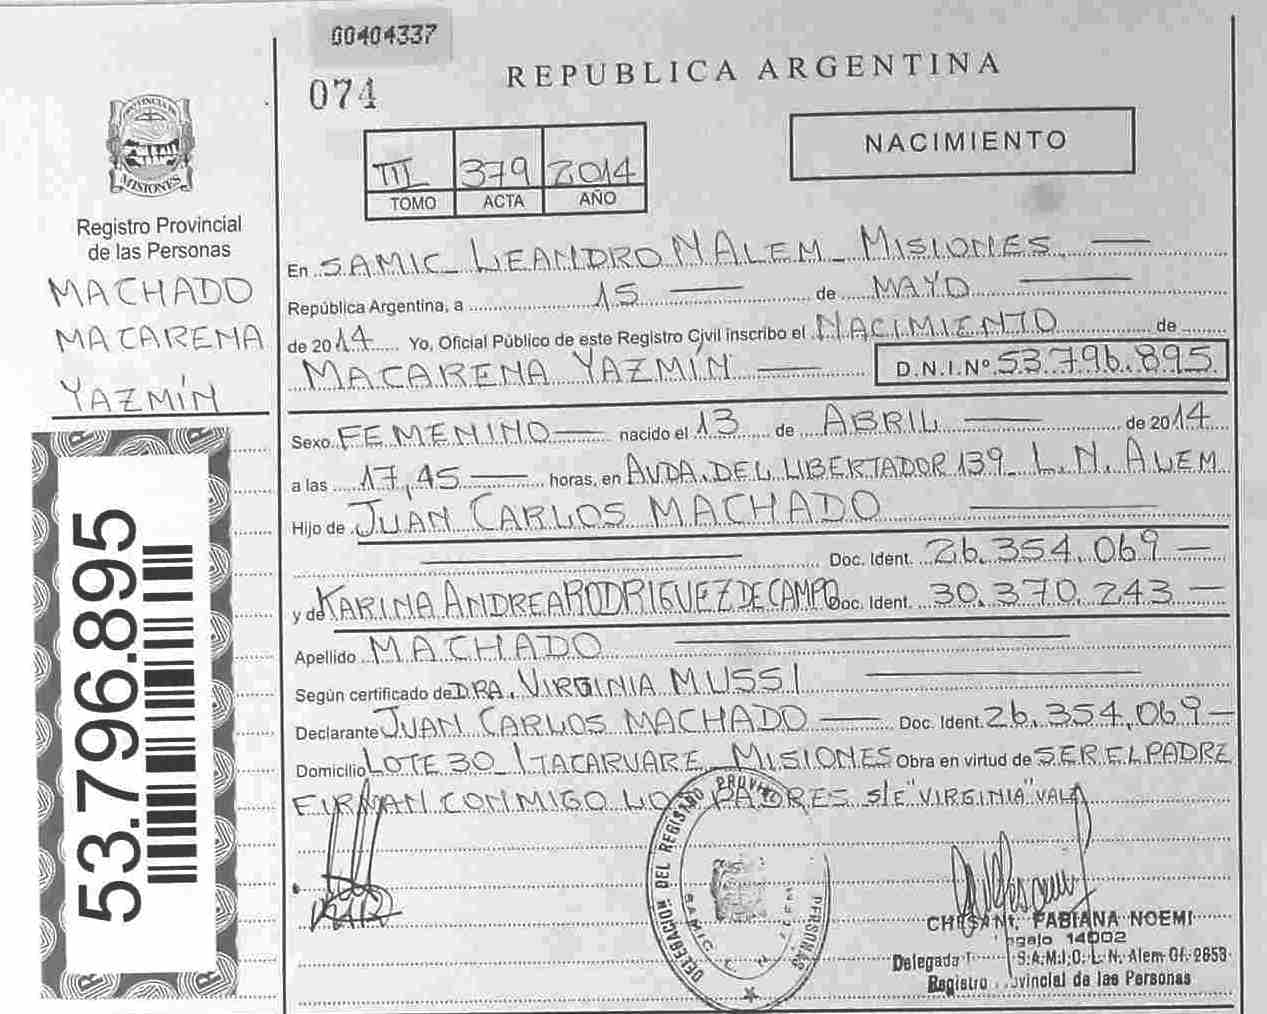 00404337
074
REPUBLICA ARGENTINA
NACIMIENTO
III 379 2014
TOMO ACTA AÑO
PROVINCIA DE
MISIONES
Registro Provincial
de las Personas
MACHADO
MACARENA
YAZMÍN
53.796.895
En SAMIC_ LEANDRO N ALEM_ MISIONES
República Argentina, a 15 de MAYO
de 2014 Yo, Oficial Público de este Registro Civil inscribo el NACIMIENTO de
MACARENA YAZMÍN D.N.I.Nº 53.796.895
Sexo FEMENINO nacido el 13 de ABRIL de 2014
a las 17,45 horas, en AVDA. DEL LIBERTADOR 139_ L.N. ALEM
Hijo de JUAN CARLOS MACHADO
Doc. Ident. 26.354.069
y de KARINA ANDREA RODRIGUEZ DE CAMPO Doc. Ident. 30.370.243
Apellido MACHADO
Según certificado de DRA. VIRGINIA MUSSI
Declarante JUAN CARLOS MACHADO Doc. Ident. 26.354.069
Domicilio LOTE 30_ ITACARUARE_ MISIONES Obra en virtud de SER EL PADRE
FIRMAN CONMIGO LOS PADRES S/E "VIRGINIA" VALE
DELEGACION DEL REGISTRO PROVINC
PERSONAS
SAMIC L N ALEM
FABIANA NOEMI
14002
Delegada S.A.M.I.C. L. N. Alem Of. 2653
Registro Provincial de las Personas